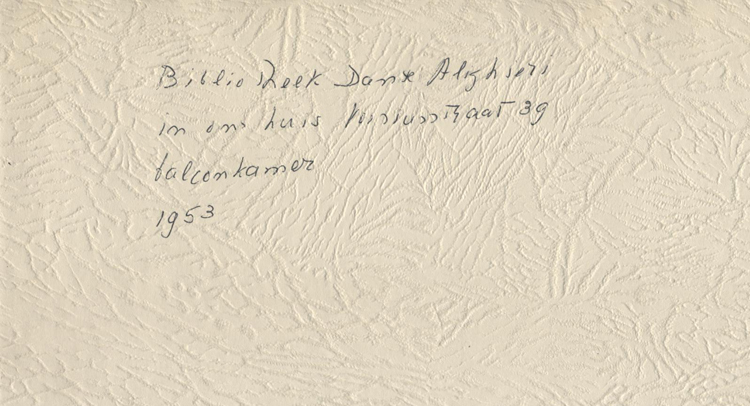 Bibliotheek Dante Alighieri
in ons huis Vossiusstraat 39
balconkamer
1953